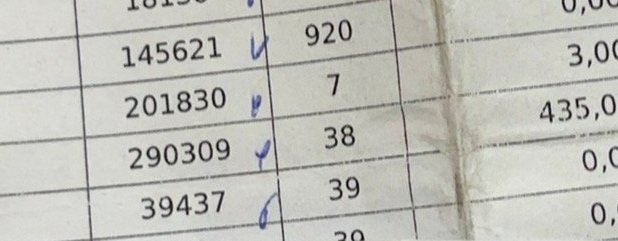 145621 920 3,00
201830 7 435,0
290309 38 0,0
39437 39 0,